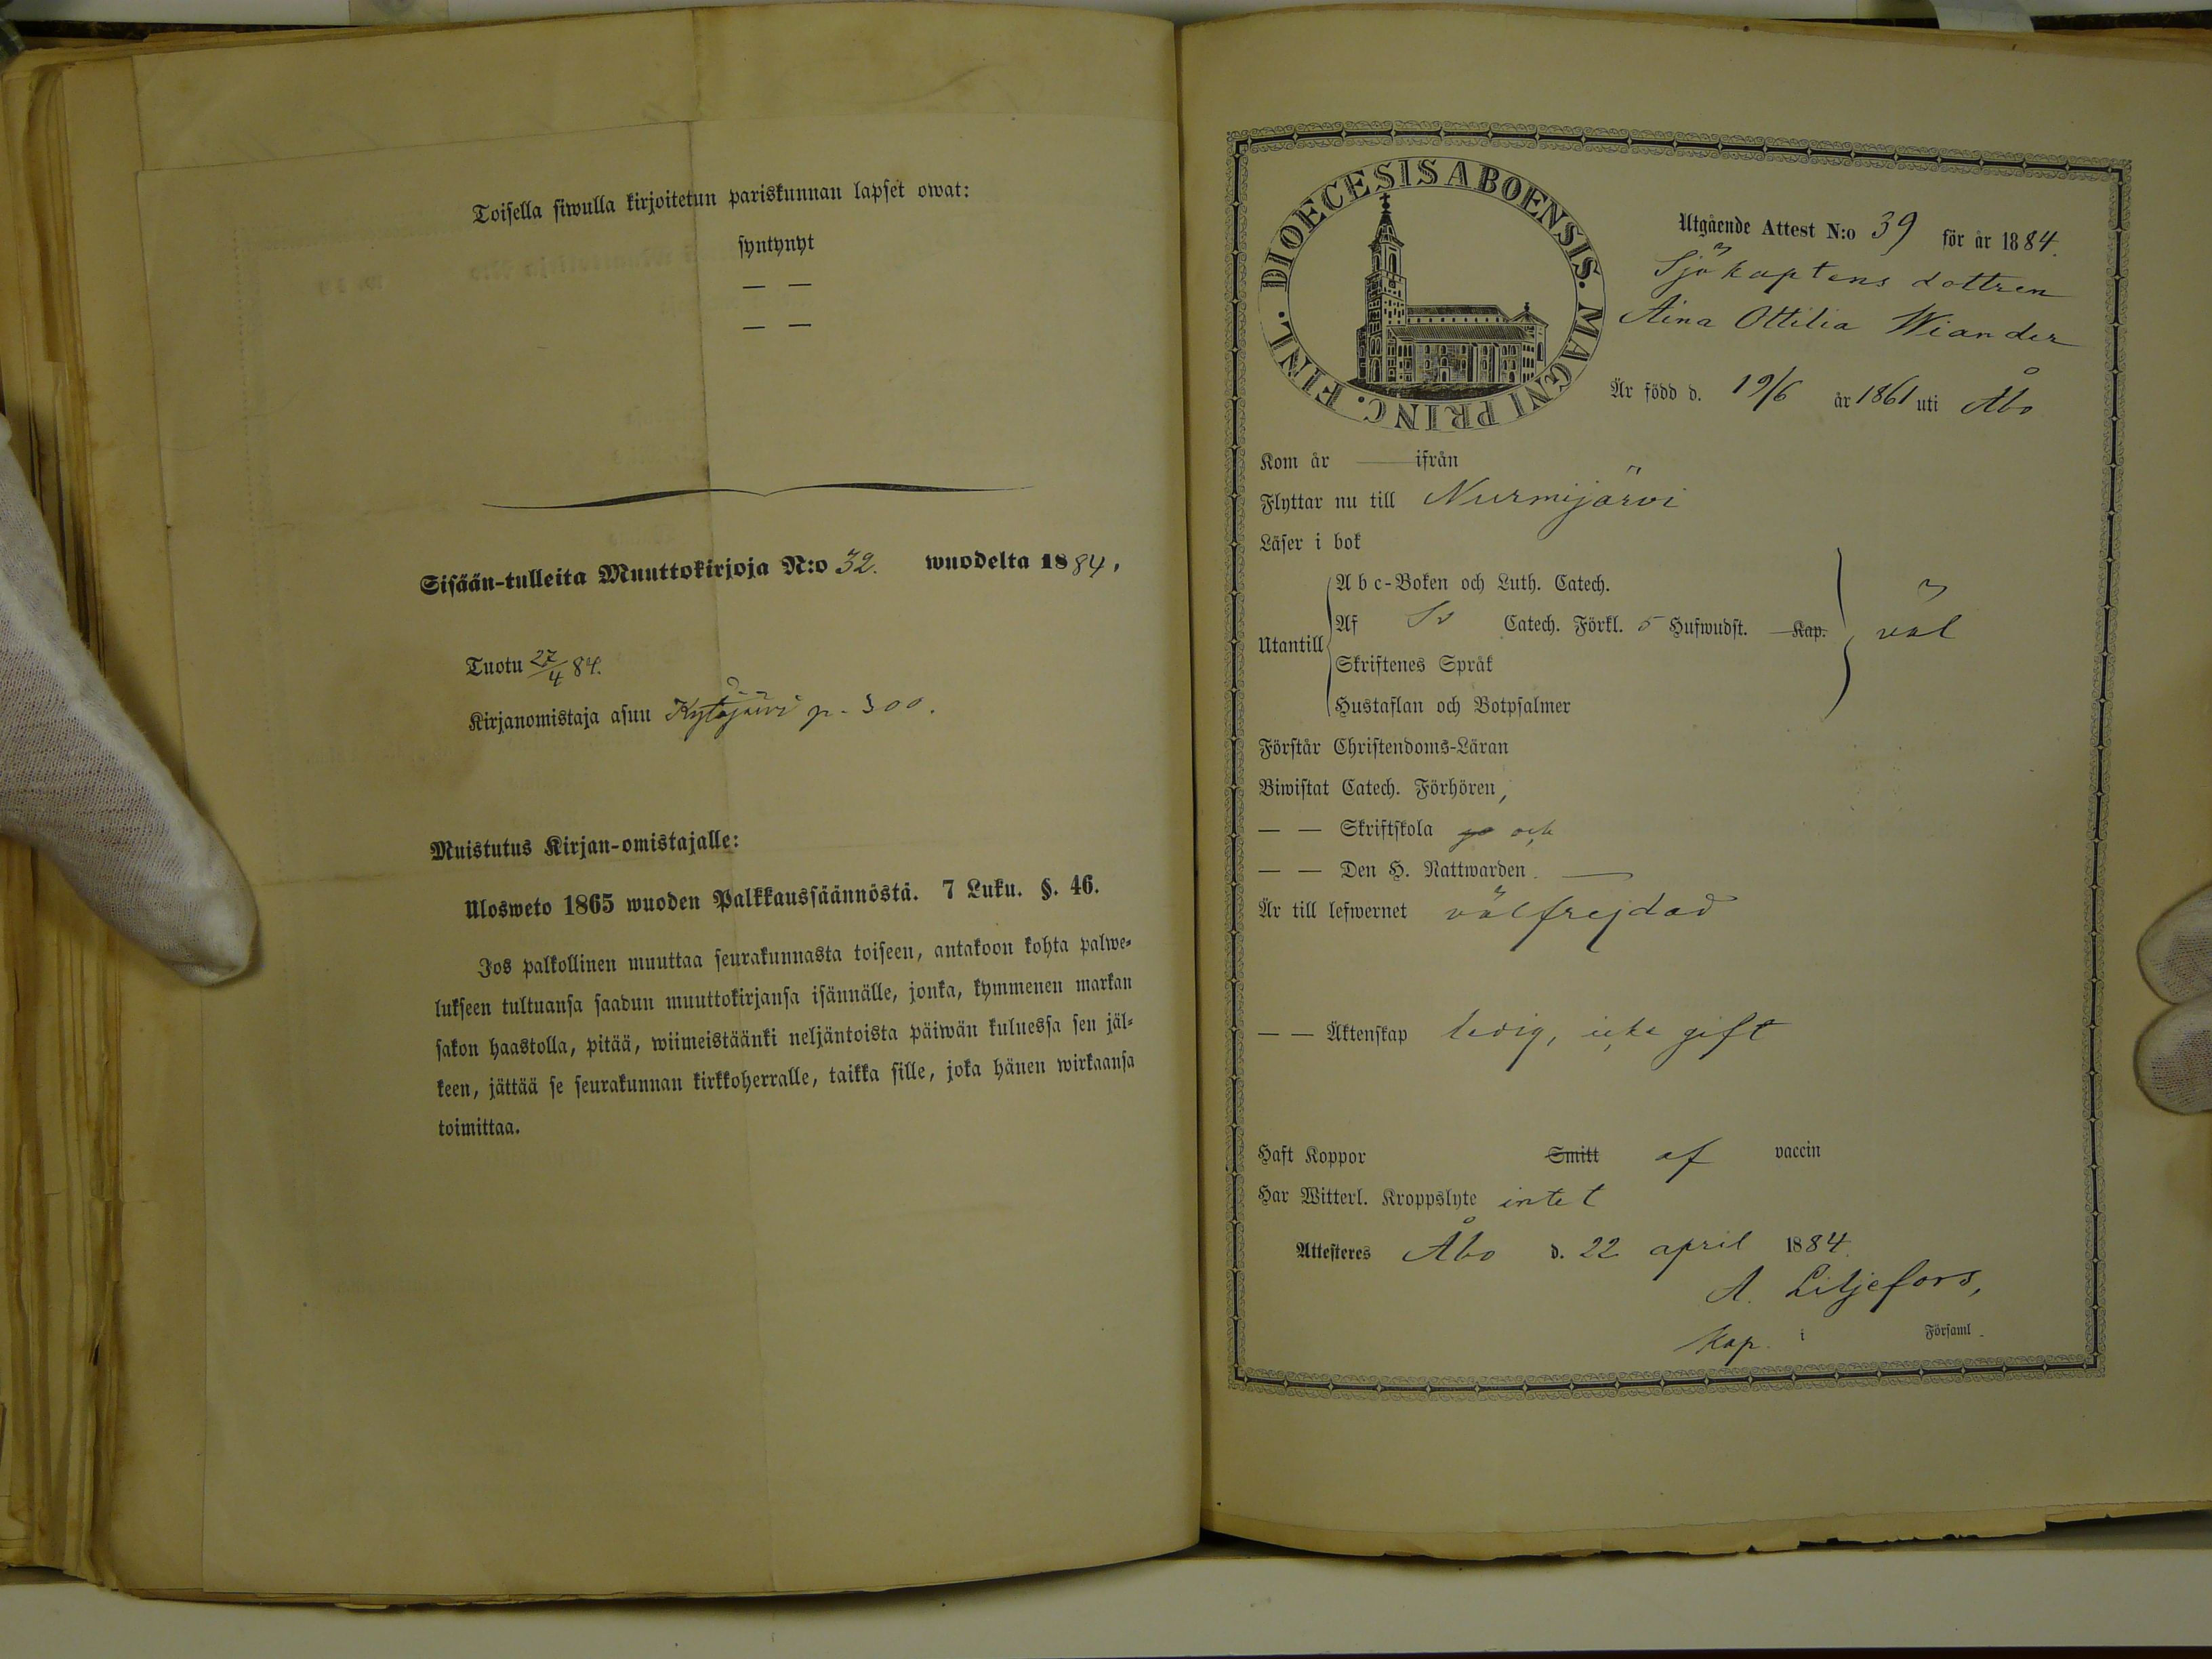 Toisella siwulla kirjoitetun pariskunnan lapset owat:
syntynyt
— —
— —
Sisään-tulleita Muuttokirjoja N:o 32. wuodelta 1884,
Tuotu 27/4 84.
Kirjanomistaja asuu Kytäjärvi p. 300.
Muistutus Kirjan-omistajalle:
Ulosweto 1865 wuoden Palkkaussäännöstä. 7 Luku. §. 46.
Jos palkollinen muuttaa seurakunnasta toiseen, antakoon kohta palwe-
lukseen tultuansa saadun muuttokirjansa isännälle, jonka, kymmenen markan
sakon haastolla, pitää, wiimeistäänki neljäntoista päiwän kuluessa sen jäl-
keen, jättää se seurakunnan kirkkoherralle, taikka sille, joka hänen wirkaansa
toimittaa.
DIOECESIS ABOENSIS. MAGNI PRINC. FINL.
Utgående Attest N:o 39 för år 1884.
Sjökaptens dottren
Aina Ottilia Wiander
Är född d. 19/6 år 1861 uti Åbo
Kom år — ifrån
Flyttar nu till Nurmijärvi
Läser i bok
Utantill
A b c-Boken och Luth. Catech.
Af Sv Catech. Förkl. 5 Hufwudst. Kap.
Skriftenes Språk
Hustaflan och Botpsalmer
väl
Förstår Christendoms-Läran
Biwistat Catech. Förhören,
— — Skriftskola och
— — Den H. Nattwarden. —
Är till lefwernet välfrejdad
— — Äktenskap ledig, icke gift
Haft Koppor Smitt af vaccin
Har Witterl. Kroppslyte intet
Attesteres Åbo d. 22 april 1884.
A. Liljefors,
Kap. i Församl.